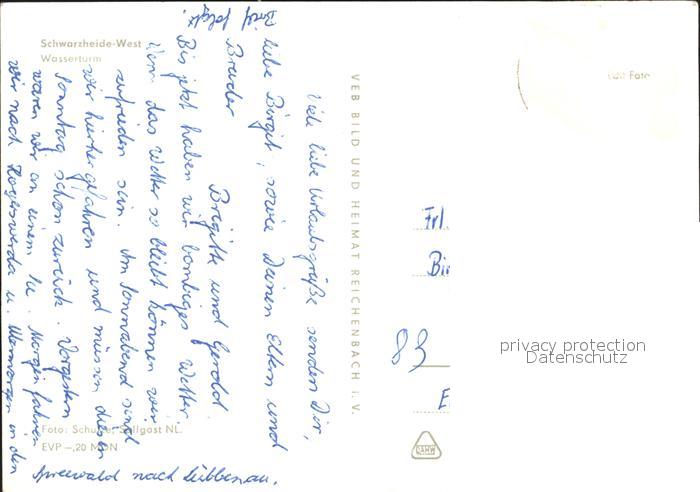 Schwarzheide-West
Wasserturm
Viele liebe Urlaubsgrüße senden Dir,
liebe Birgit, sowie Deinen Eltern und
Bruder Brigitte und Gerold.
Bis jetzt haben wir bombiges Wetter.
Wenn das Wetter so bleibt können wir
zufrieden sein. Am Sonnabend sind
wir hierher gefahren und müssen diesen
Sonntag schon zurück. Vorgestern
waren wir an einem See. Morgen fahren
wir nach Hoyerswerda u. übermorgen in den
Spreewald nach Lübbenau.
Brief folgt.
Foto: Schulze, Sallgast NL.
EVP –,20 MDN
VEB BILD UND HEIMAT REICHENBACH i. V.
Echt Foto
Frl.
Bir
83
E
privacy protection
Datenschutz